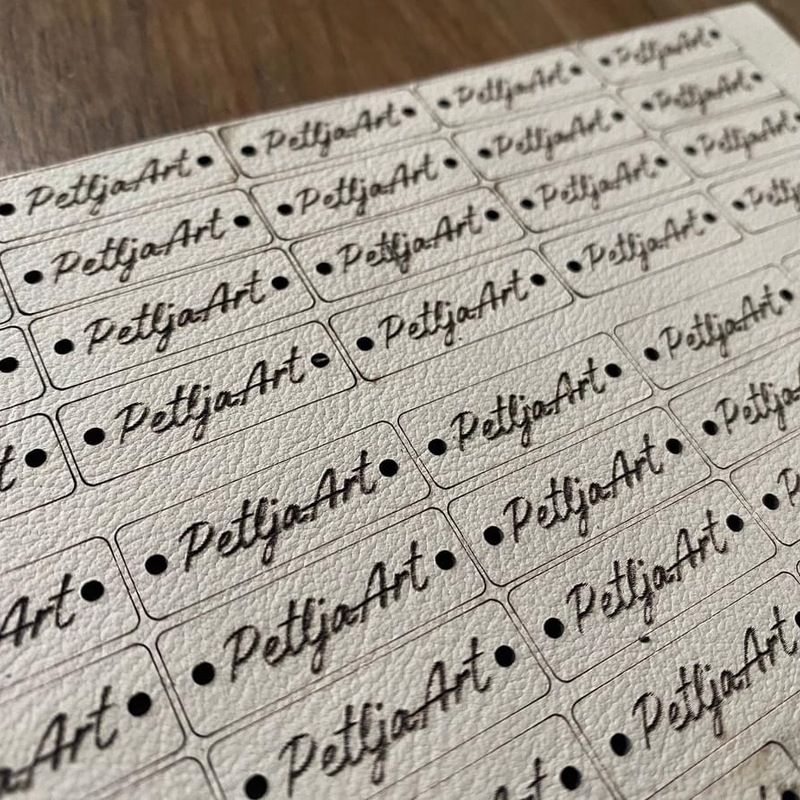 PetljaArt PetljaArt PetljaArt PetljaArt
PetljaArt PetljaArt PetljaArt PetljaArt
PetljaArt PetljaArt PetljaArt PetljaArt
PetljaArt PetljaArt PetljaArt
PetljaArt PetljaArt PetljaArt
Art PetljaArt PetljaArt
Art PetljaArt PetljaArt
PetljaArt